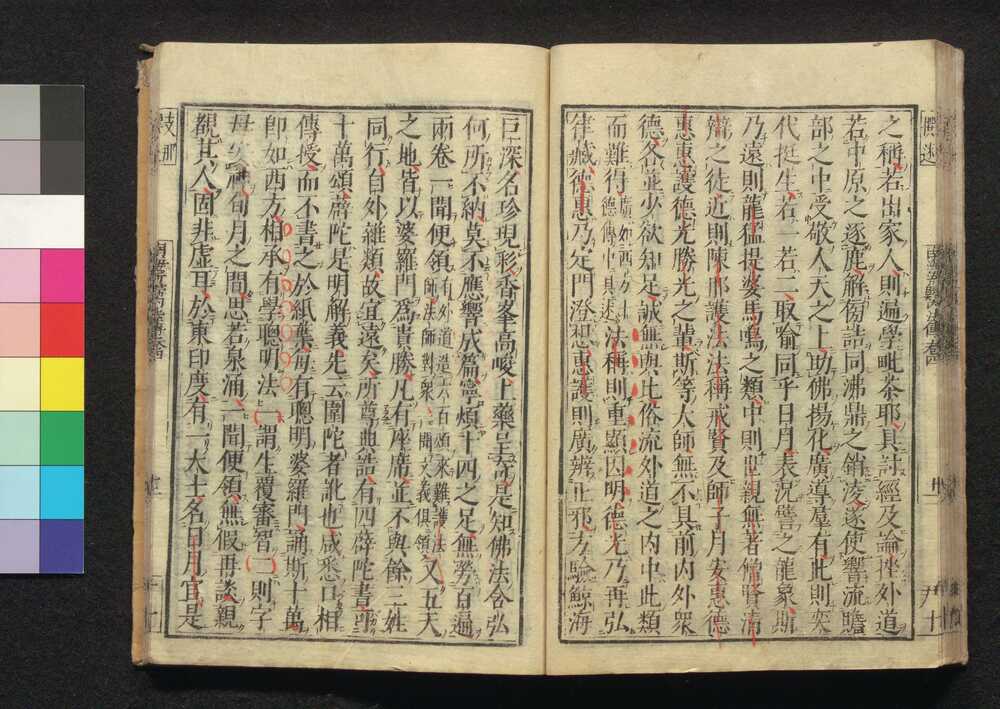 之稱若出家人則遍學毗奈耶具討經及論挫外道
若中原之逐鹿解傍詰同沸鼎之銷凌遂使響流贍
部之中受敬人天之上助佛揚化廣導羣有此則奕
代挺生若一若二取喻同乎日月表況譬之龍象斯
乃遠則龍猛提婆馬鳴之類中則世親無著僧賢清
辯之徒近則陳那護法法稱戒賢及師子月安惠德
惠惠護德光勝光之輩斯等大師無不具前內外眾
德各並少欲知足誠無與比俗流外道之內中此類
而難得廣如西方十德傳中具述法稱則重顯因明德光乃再弘
律藏德惠乃定門澄想惠護則廣辨正邪方驗鯨海
巨深名珍現彩香峯高峻上藥呈奇是知佛法含弘
何所不納莫不應響成篇寧煩十四之足無勞百遍
兩卷一聞便領有外道造六百頌來難護法師法師對眾一聞文義俱領又五天
之地皆以婆羅門爲貴勝凡有座席並不與餘三姓
同行自外雜類故宜遠矣所尊典誥有四薜陀書可
十萬頌薜陀是明解義先云圍陀者訛也咸悉口相
傳授而不書之於紙葉每有聰明婆羅門誦斯十萬
即如西方相承有學聰明法一謂生覆審智二則字
母安神旬月之間思若泉涌一聞便領無假再談親
覩其人固非虛耳於東印度有一大士名曰月官是